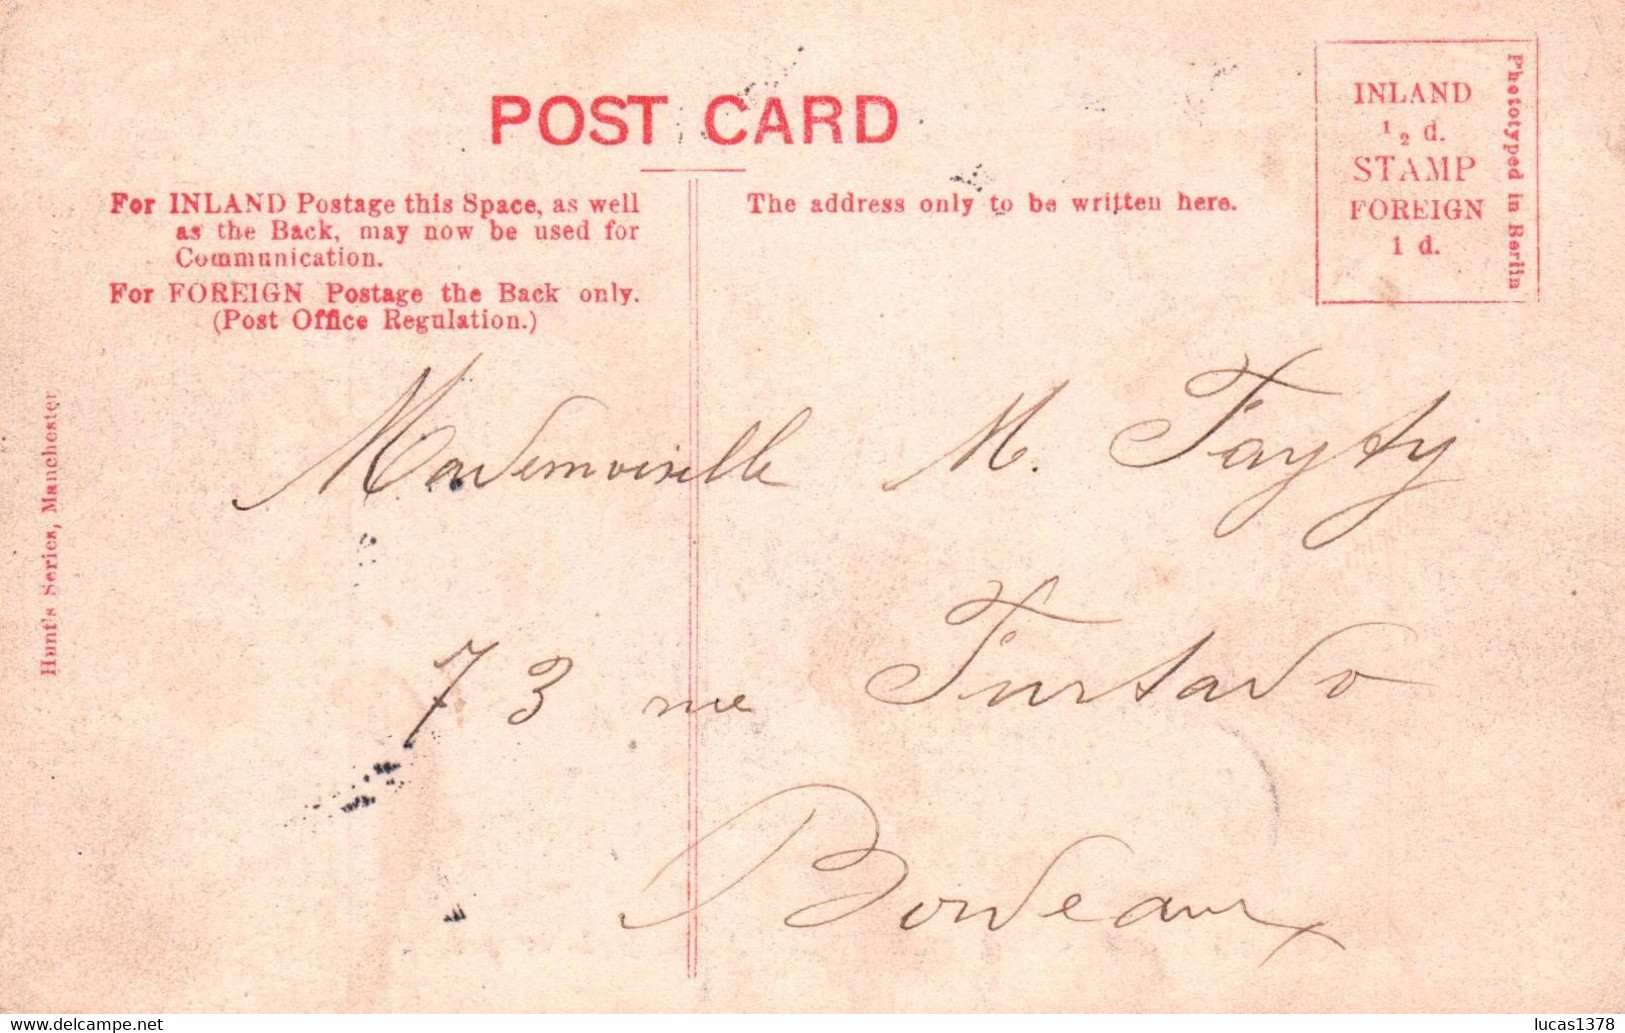 POST CARD
For INLAND Postage this Space, as well
as the Back, may now be used for
Communication.
For FOREIGN Postage the Back only.
(Post Office Regulation.)
The address only to be written here.
INLAND
1/2 d.
STAMP
FOREIGN
1 d.
Phototyped in Berlin
Hunt's Series, Manchester
Mademoiselle M. Fayty
73 rue Furtado
Bordeaux
delcampe.net
lucas1378